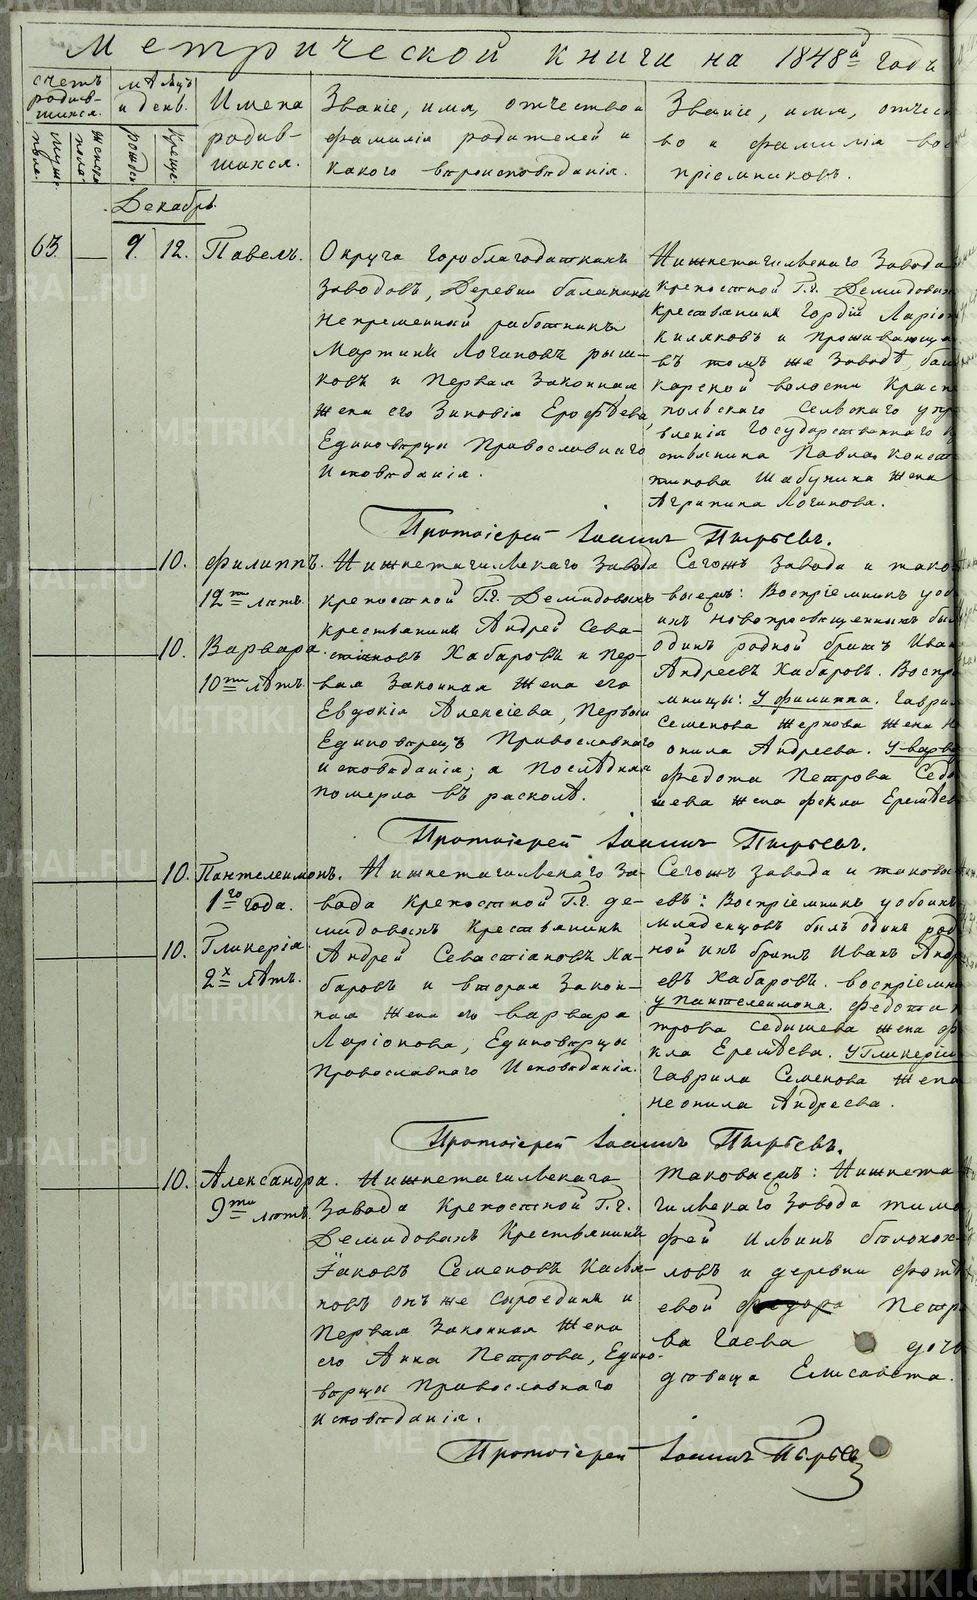 Метрической книги на 1848й годъ
счетъ родив-шихся.
муж. пола.
женска пола.
мѣсяцъ и день.
рожден.
крещен.
Имена родив-шихся.
Званіе, имя, отчество и
фамилія родителей и
какого вѣроисповѣданія.
Званіе, имя, отчест
во и фамилія вос
пріемниковъ.
Декабрь.
63. — 9. 12. Павелъ.
Округа Гороблагодатскихъ
заводовъ, Деревни балакины
непременный работникъ
Мартинъ Логиновъ рыш-
ковъ и первая законная
жена его Зиновія Ерофѣева,
Единовѣрцы Православнаго
Исповѣданія.
Нижнетагильскаго Завода
крепостной Г.г. Демидовыхъ
крестьянинъ Гордій Ларіон
Киляковъ и проживающая
въ томъ же Заводѣ,
карской волости Красн
польскаго Сельскаго упр
вленія Государственнаго
стьянина Павла Конст
тинова Шабунина жена
Агрипина Логинова.
Протоіерей Іоаннъ Пырьевъ.
10. Филиппъ.
12ти лѣтъ.
10. Варвара.
10ти лѣтъ.
Нижнетагильскаго завода
крепостной Г.г. Демидовыхъ
крестьянинъ Андрей Сева-
стіановъ Хабаровъ и пер-
вая законная жена его
Евдокія Алексіева, Первый
Единовѣрецъ Православнаго
исповѣданія; а послѣдняя
померла въ расколѣ.
Сегожъ завода и таков
выемъ: Воспріемникъ у
ихъ новопросвещенныхъ был
одинъ родной братъ Иван
Андреевъ Хабаровъ. Воспр
мницы: У филиппа. Гаврил
Семенова жена Не
онила Андреева. У варва
Федота Петрова Седы
шева жена фекла Еремѣев
Протоіерей Іоаннъ Пырьевъ.
10. Пантелеимонъ.
1го года.
10. Гликерія.
2х лѣтъ.
Нижнетагильскаго За-
вода крепостной Г.г. Де-
мидовыхъ крестьянинъ
Андрей Севастіановъ Ха-
баровъ и вторая закон-
ная жена его варвара
Ларіонова, Единовѣрцы
Православнаго Исповѣданія.
Сегожъ завода и таков
евъ: Воспріемникъ у обоихъ
младенцовъ былъ одинъ род
ной ихъ братъ Иванъ Андр
евъ Хабаровъ. воспріемн
у Пантелеимона. Федота П
трова Седышева жена Ф
кла Еремѣева. У Гликеріи
Гаврила Семенова жена
неонила Андреева.
Протоіерей Іоаннъ Пырьевъ.
10. Александра.
9ти лѣтъ.
Нижнетагильскаго
Завода Крепостной Г.г.
Демидовыхъ Крестьянинъ
Іаковъ Семеновъ Касья-
новъ онъ же Сыроединъ и
первая законная жена
его Анна Петрова, Едино-
вѣрцы Православнаго
исповѣданія.
таковыемъ: Нижнета
гильскаго Завода тимо
фей Ильинъ бѣлокоп
ловъ и деревни фотѣ
евой Петр
ва Гаева доч
дѣвица Елисавета.
Протоіерей Іоаннъ Пырьевъ
METRIKI.GASO-URAL.RU